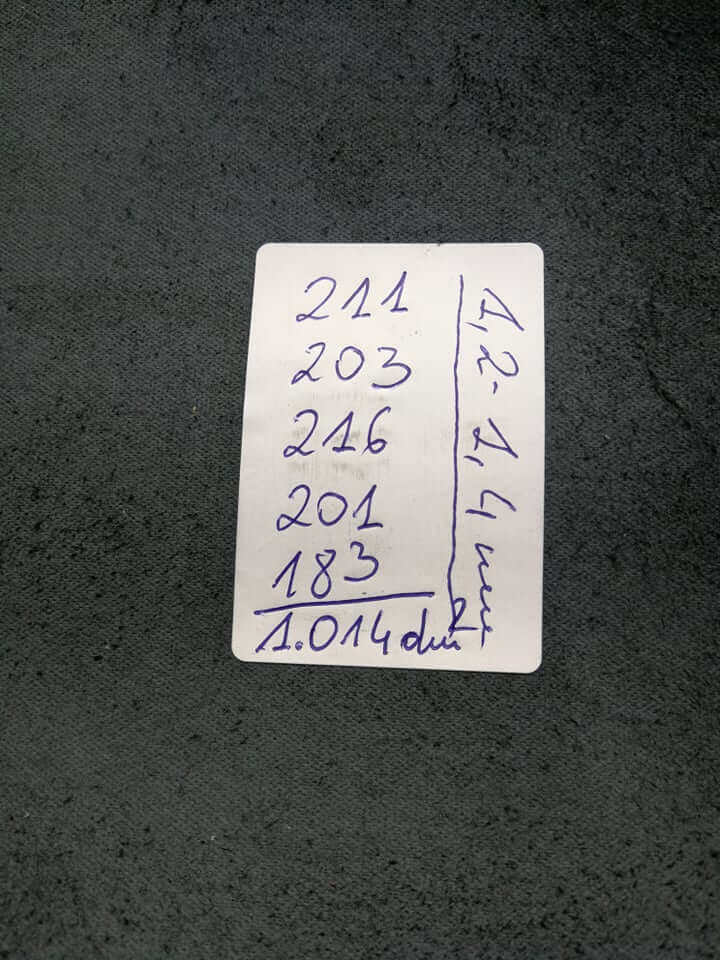 211
203
216
201
183
1.014 dm²
1,2-1,4 mm